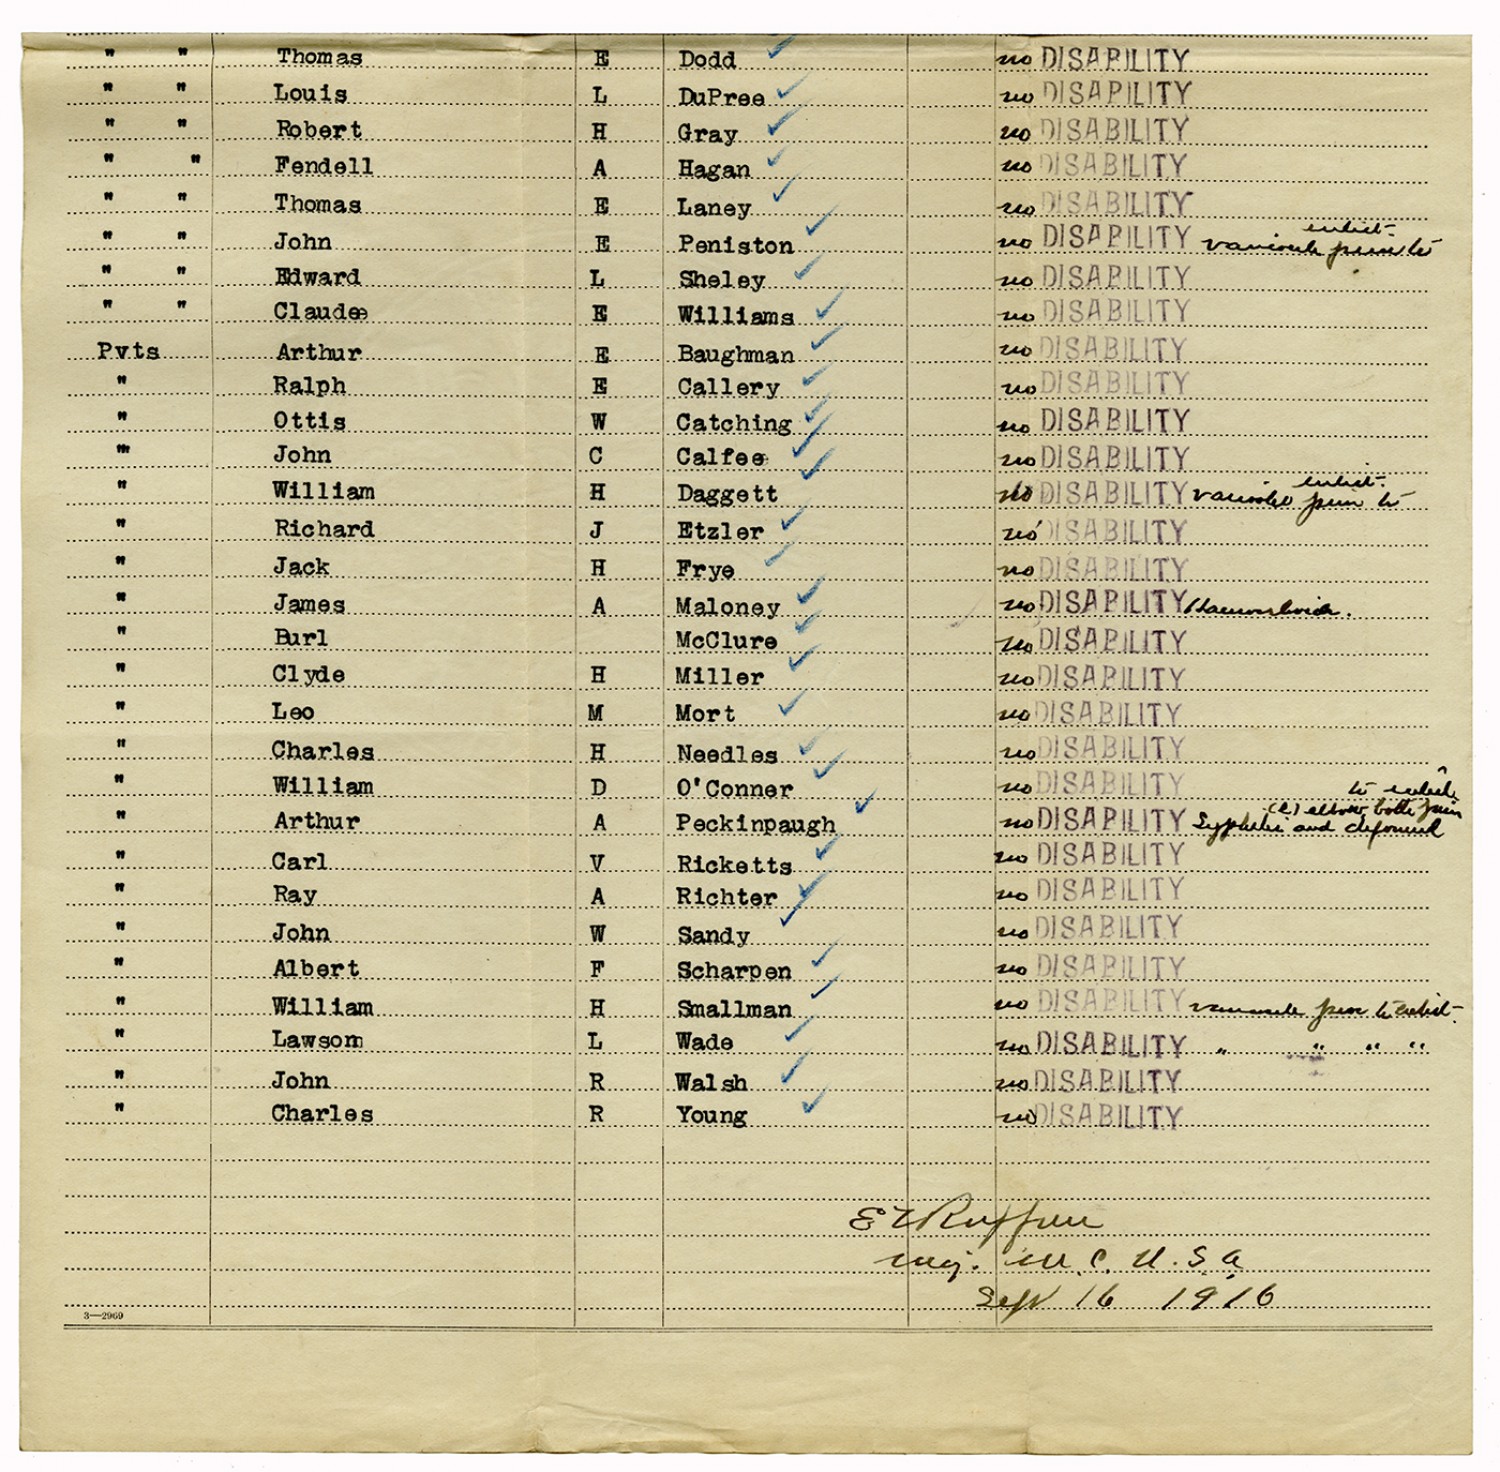 " " Thomas E Dodd no DISABILITY
" " Louis L DuPree no DISABILITY
" " Robert H Gray no DISABILITY
" " Fendell A Hagan no DISABILITY
" " Thomas E Laney no DISABILITY
enlist-
" " John E Peniston no DISABILITY varicocele prior to
" " Edward L Sheley no DISABILITY
" " Claude E Williams no DISABILITY
Pvts Arthur E Baughman no DISABILITY
" Ralph E Callery no DISABILITY
" Ottis W Catching no DISABILITY
" John C Calfee no DISABILITY
enlist-
" William H Daggett no DISABILITY prior to
" Richard J Etzler no DISABILITY
" Jack H Frye no DISABILITY
" James A Maloney no DISABILITY
" Burl McClure no DISABILITY
" Clyde H Miller no DISABILITY
" Leo M Mort no DISABILITY
" Charles H Needles no DISABILITY
" William D O'Conner no DISABILITY
to enlist
(L) elbow, both prior
" Arthur A Peckinpaugh no DISABILITY Syphilis and deformed
" Carl V Ricketts no DISABILITY
" Ray A Richter no DISABILITY
" John W Sandy no DISABILITY
" Albert F Scharpen no DISABILITY
" William H Smallman no DISABILITY varicocele prior to enlist-
" Lawson L Wade no DISABILITY " " " "
" John R Walsh no DISABILITY
" Charles R Young no DISABILITY
Maj. M.C. U.S.A
Sept 16 1916
3—2969